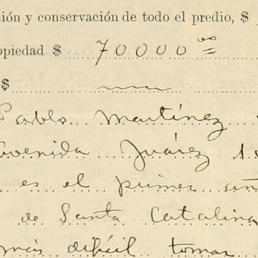 ión y conservación de todo el predio, $
opiedad $ 70000 00
$
Pablo Martínez
Avenida Juárez
es el primer
de Santa Catalina
más difícil tomar